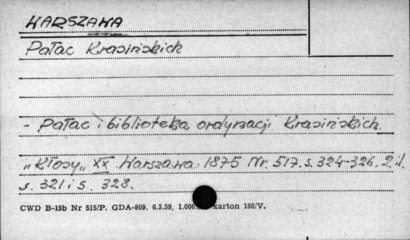 WARSZAWA
Pałac Krasińskich
- Pałac i biblioteka ordynacji Krasińskich.
"Kłosy" XX. Warszawa 1875 Nr. 517. s. 324-326. 2 il.
s. 321 i s. 328.
CWD B-15b Nr 515/P. GDA-809. 6.3.59. 1.000. karton 180/V.